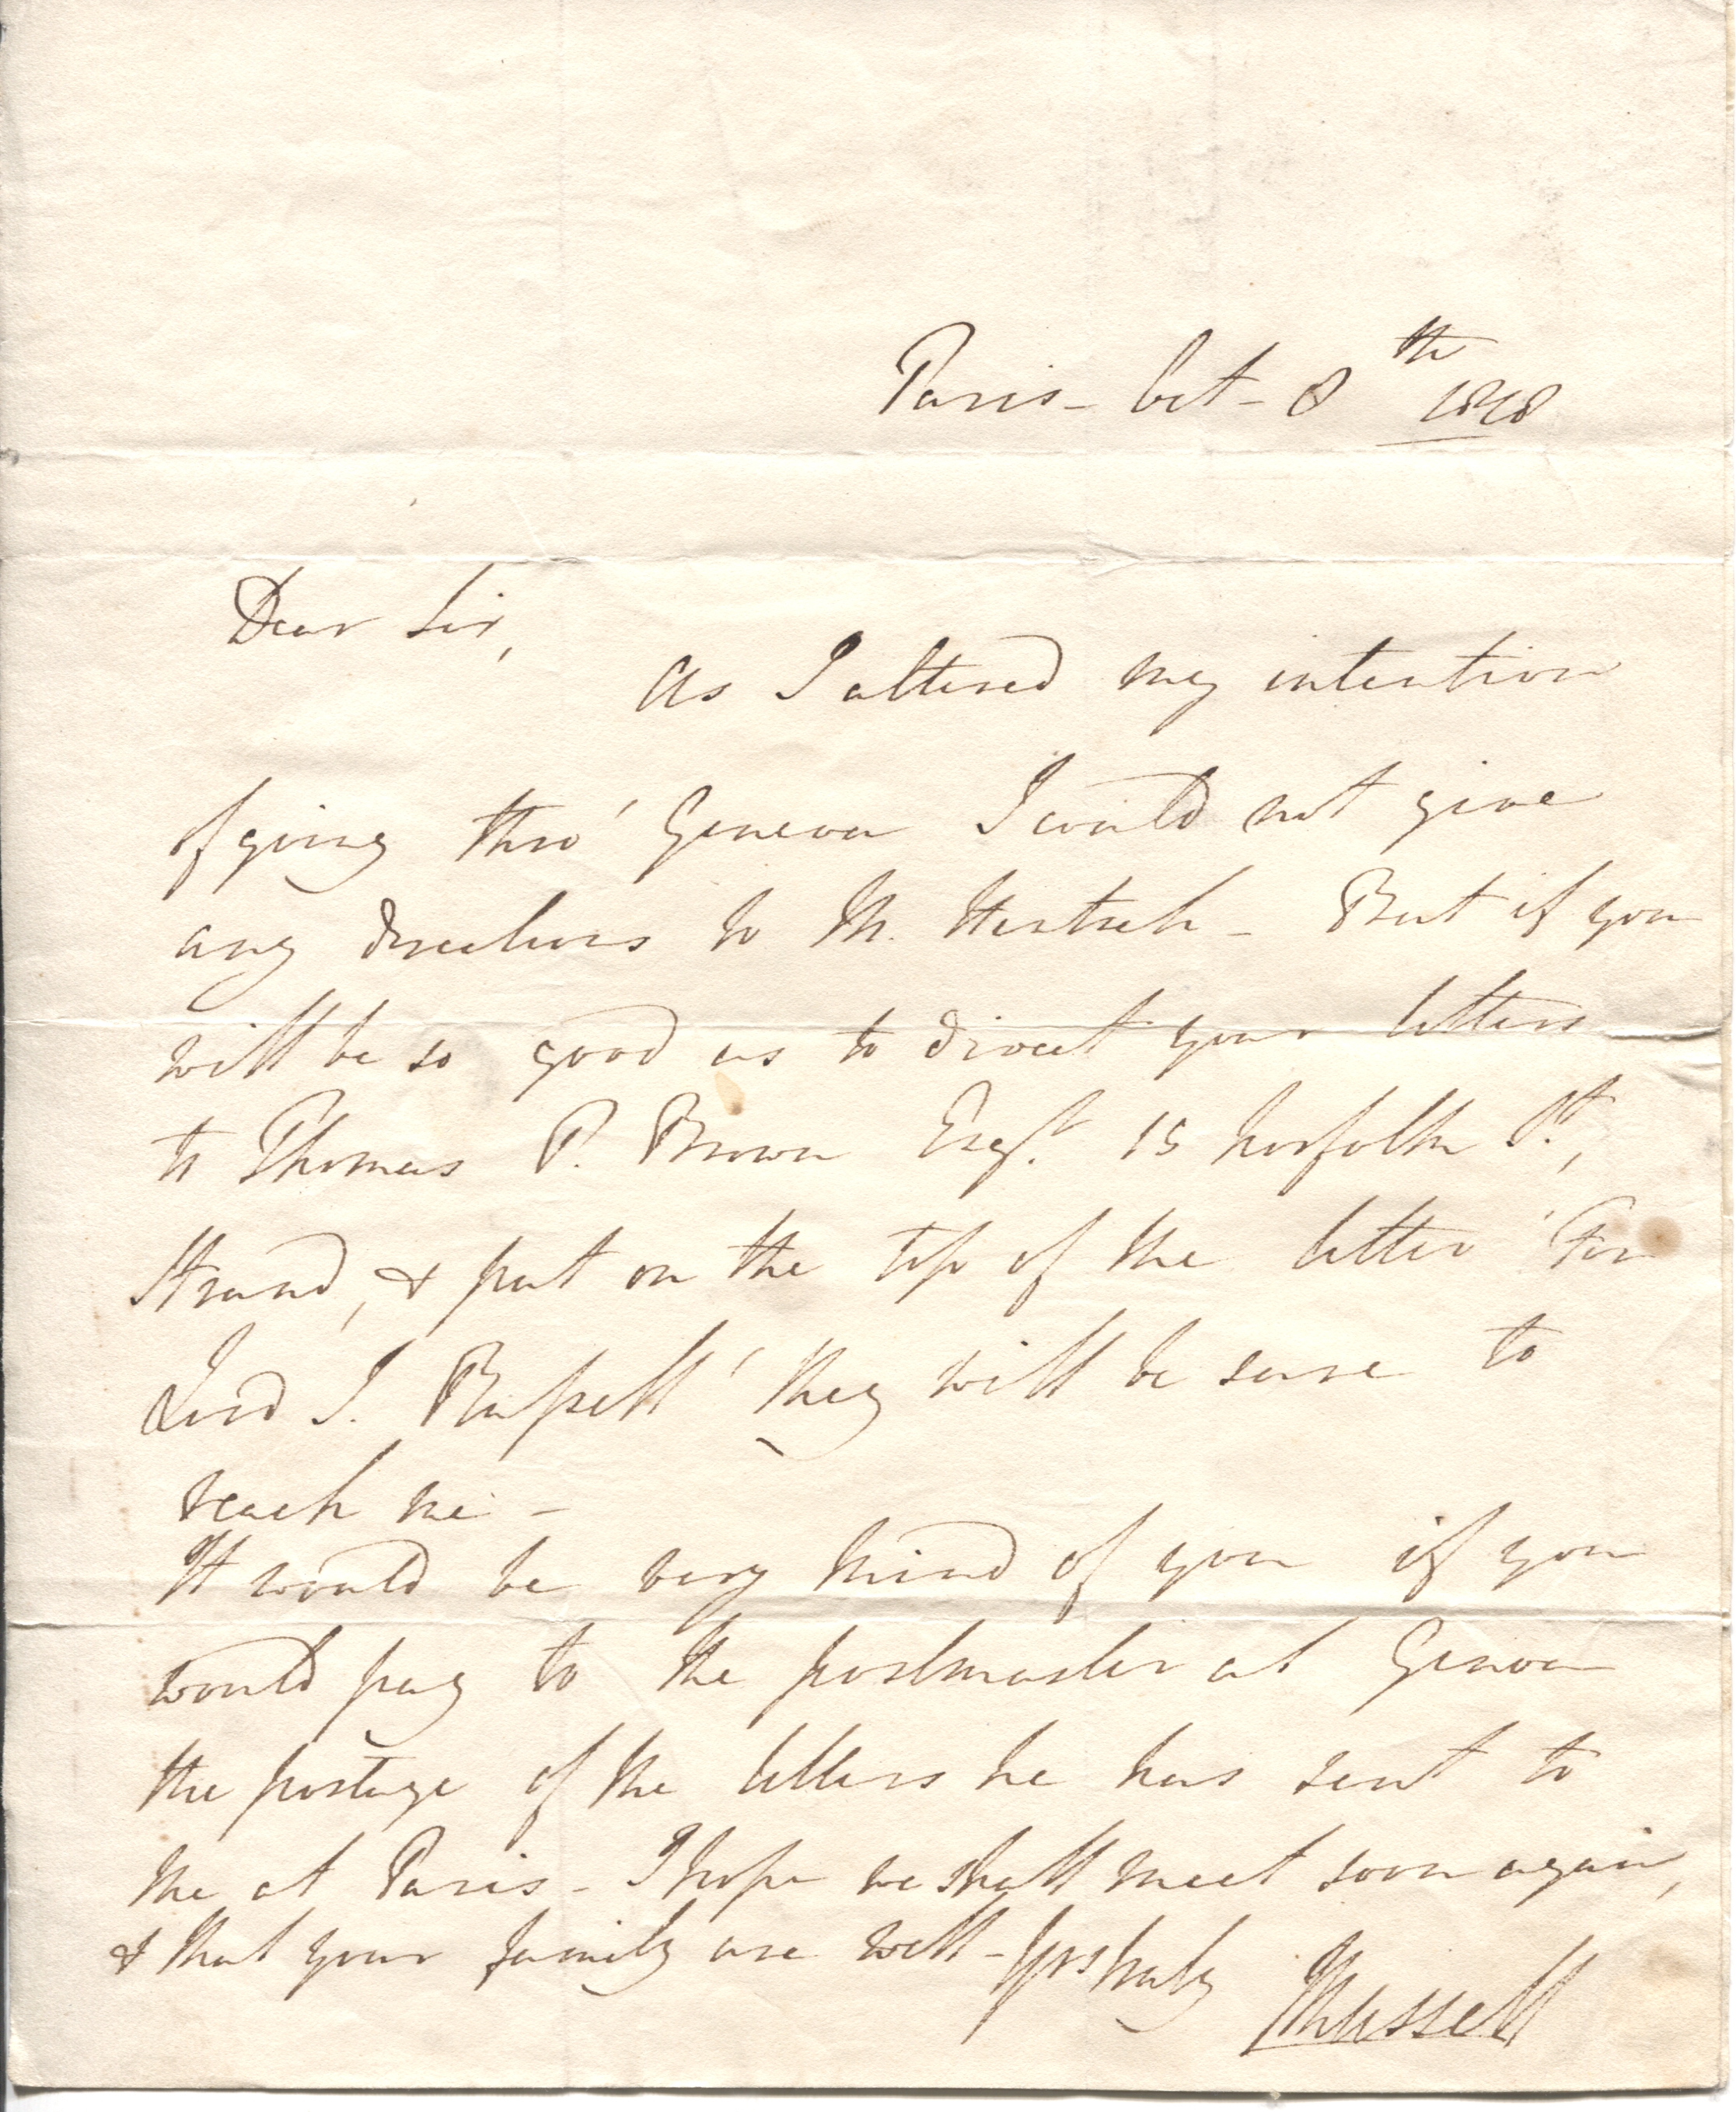 Paris - Oct - 8th 1818
Dear Sir,
As I altered my intention
of going thro' Geneva I could not give
any directions to M. Hentsch - But if you
will be so good as to direct your letters
to Thomas P. Brown Esqr. 15 Norfolk St.,
Strand, & put on the top of the letter 'For
Lord J. Russell' they will be sure to
reach me -
It would be very kind of you if you
would pay to the postmaster at Genoa
the postage of the letters he has sent to
me at Paris - I hope we shall meet soon again,
& that your family are well - Yrs truly
JRussell